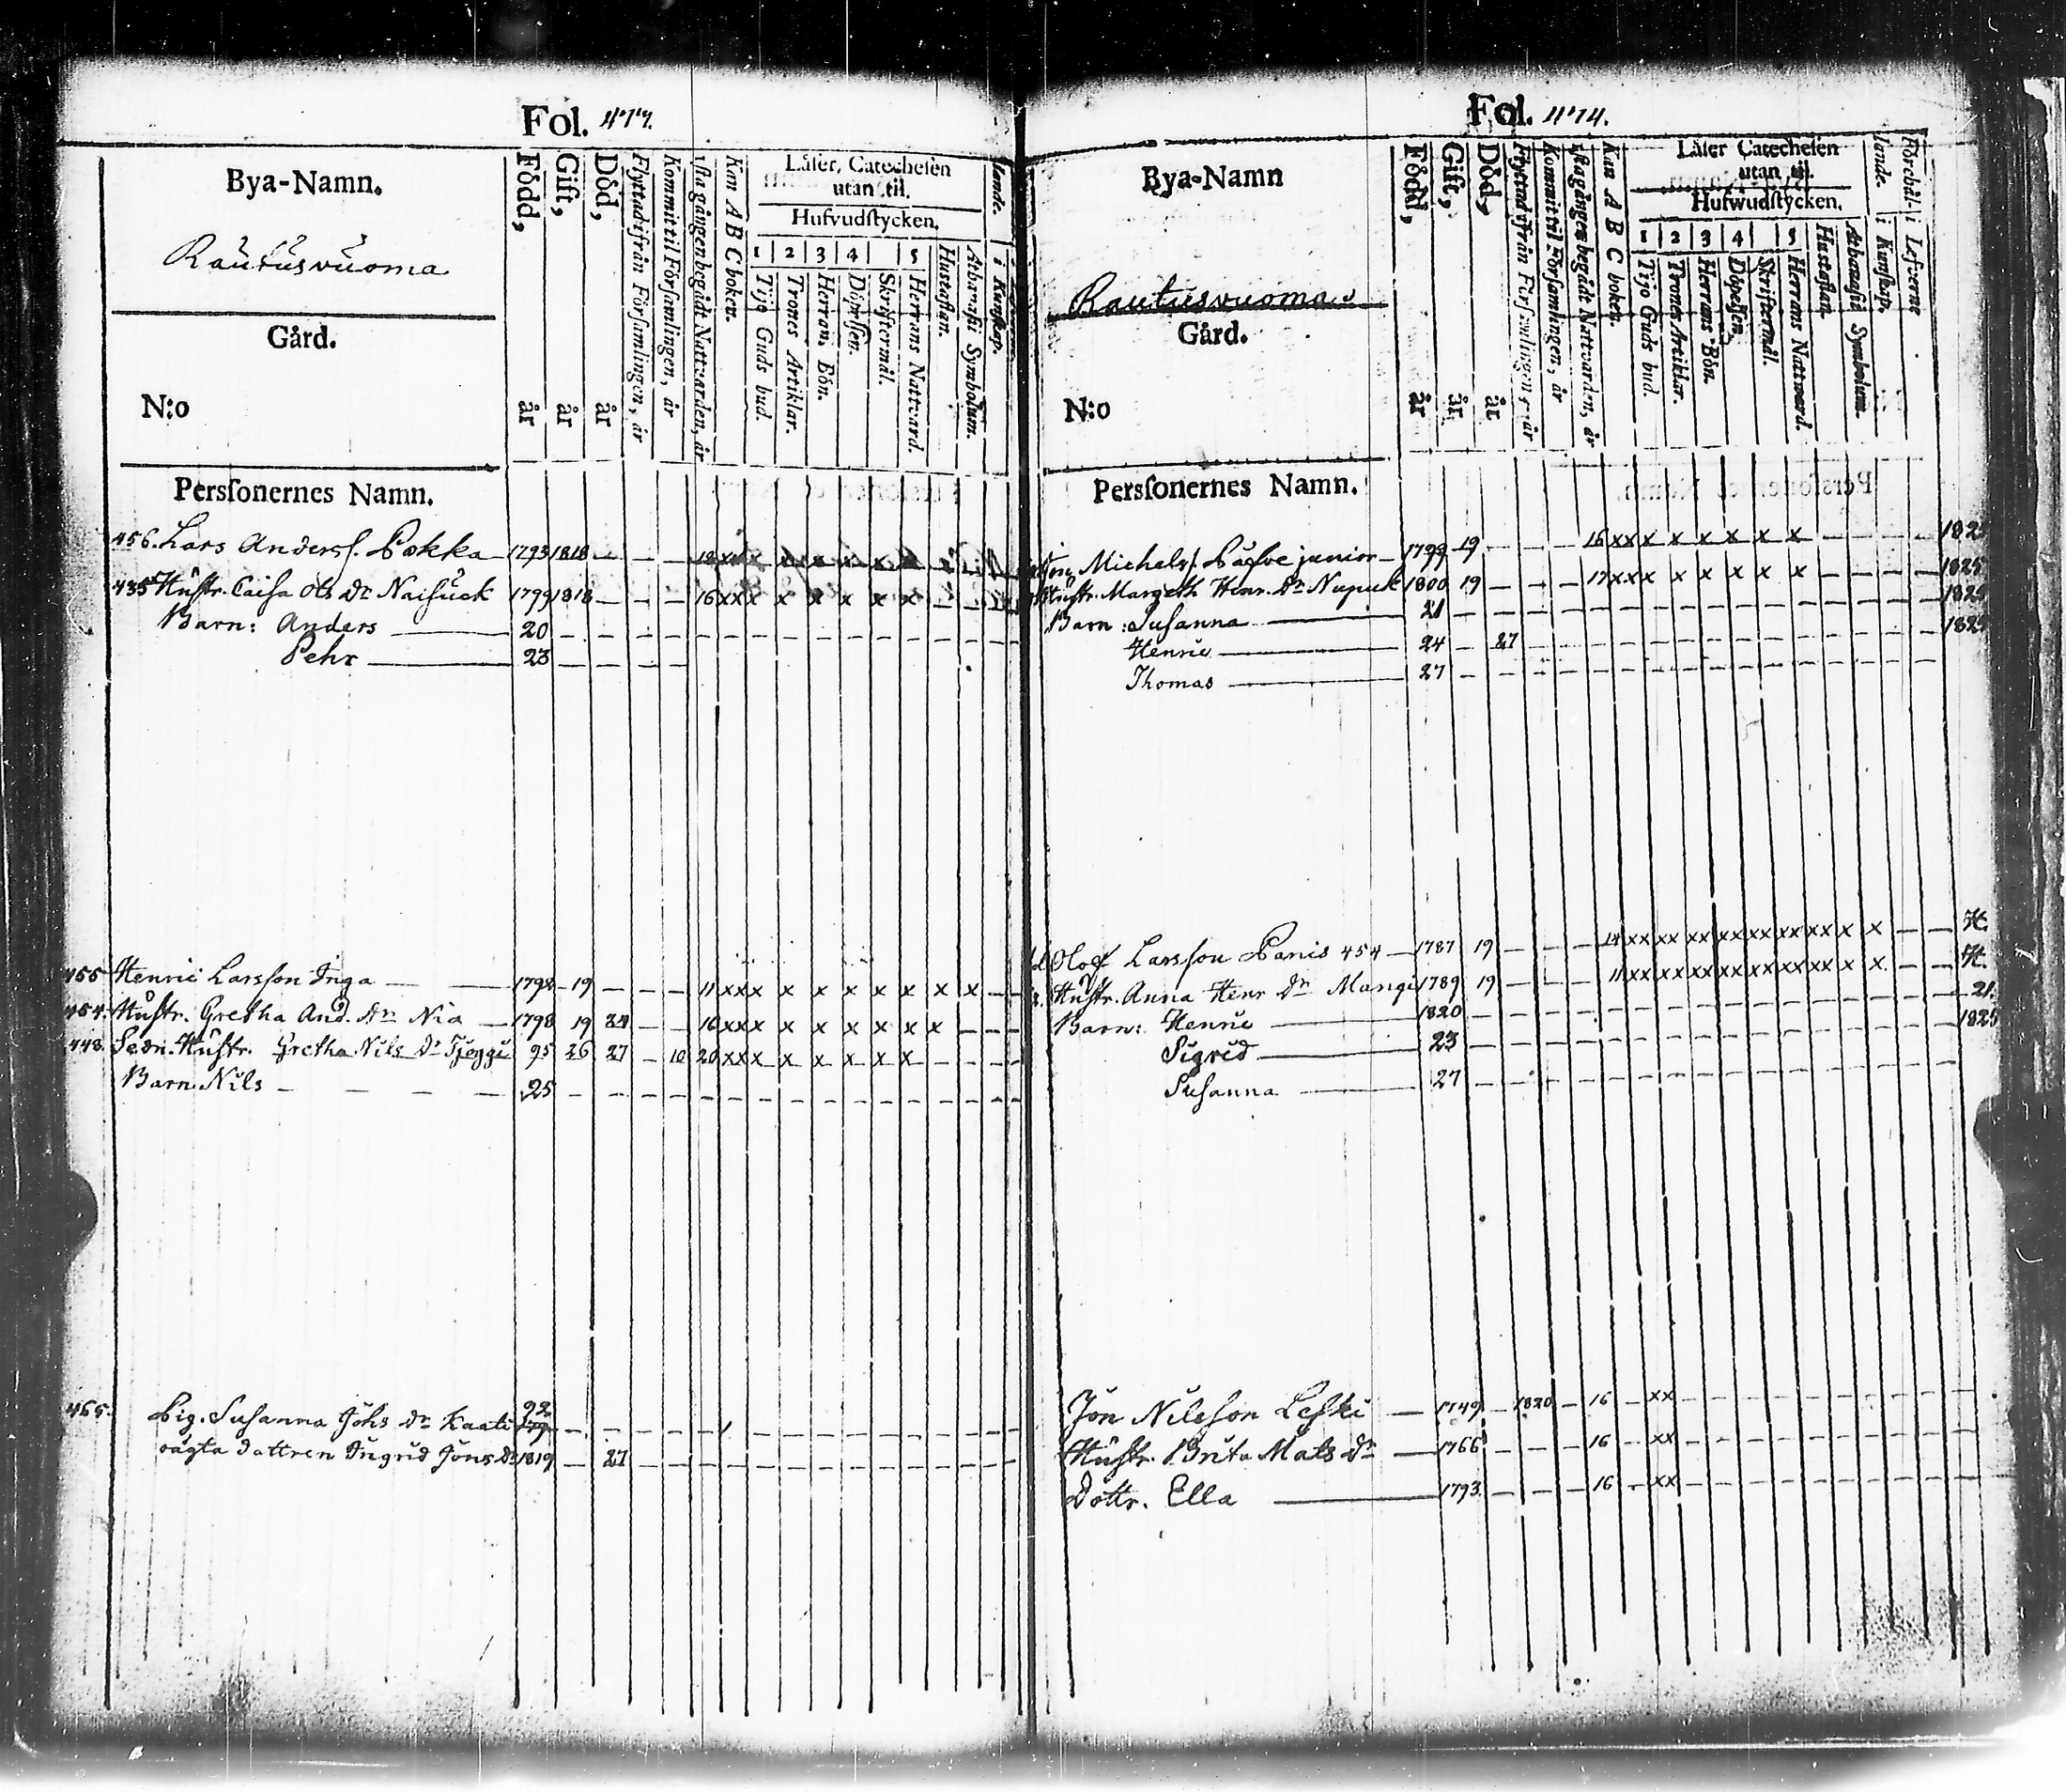 Fol. 477.
Bya-Namn.
Rautusvuoma
Gård.
N:o
Född, år
Gift, år
Död, år
Flyttad ifrån Församlingen, år
Kommit til Församlingen, år
1sta gången begådt Nattvarden, år
Kan A B C boken.
Läser Catechesen
utan til.
Hufvudstycken.
1 2 3 4 5
Tijo Guds bud.
Trones Artiklar.
Herrans Bön.
Döpelsen.
Skriftermål.
Herrans Nattvard.
Hustaflan.
Athanasii Symbolum.
i Kunskap.
Personernes Namn.
456. Lars Anderss. Pokka 1793 1818 — — — 18 xxx x x x x x
435 Hustr. Caisa Ols Dr Naisuck 1799 1818 — — — 16 xxx x x x x x — —
Barn: Anders — 20 — — — —
Pehr — 23 — — — —
455 Henric Larsson Inga — 1792 19 — — — 11 xxx x x x x x x x —
454. Hustr. Gretha And. Dr Nia — 1798 19 24 — — 16 xxx x x x x x x — —
448 Secn. Hustr. Gretha Nils Dr Tjeggi 95 26 27 — 10 20 xxx x x x x x — — —
Barn. Nils — 25 — — — —
465. Pig. Susanna Johs Dr Kaati 22
oägta dottren Ingrid Jöns Dr 1819 — 27 — — —
Fol. 474.
Bya-Namn
Rautusvuoma
Gård.
N:o
Född, år
Gift, år
Död, år
Flyttad ifrån Församlingen, år
Kommit til Församlingen, år
1sta gången begådt Nattvarden, år
Kan A B C boken.
Läser Catechesen
utan til.
Hufwudstycken.
1 2 3 4 5
Tijo Guds bud.
Trones Artiklar.
Herrans Bön.
Döpelsen.
Skriftermål.
Herrans Nattward.
Hustaflan.
Athanasii Symbolum.
Förehållande.
i Kunskap.
i Lefverne
Personernes Namn.
Michelss. Påfve junior — 1799 19 — — — 16 xxx x x x x x
Hustr. Margeth Henr. Dr Nupuk 1800 19 — — — 17 xxx x x x x x — — —
Barn: Susanna — 21 — — —
Henric — 24 — 27 — —
Thomas — 27 — — —
Olof Larsson Panis 454 — 1787 19 — — — 14 xx xx xx xx xx xx xx x x — —
Hustr. Anna Henr Dr Mangi 1789 19 — — — 11 xx xx xx xx xx xx xx x x — —
Barn: Henric — 1820 — — — 21.
Sigrid — 23 — — —
Susanna — 27 — — —
Jon Nilsson Leski — 1749 — 1820 — 16 — xx — — —
Hustr. Brita Mats Dr — 1766 — — — 16 — xx — — —
Dottr. Ella — 1793. — — — 16 — xx — — —